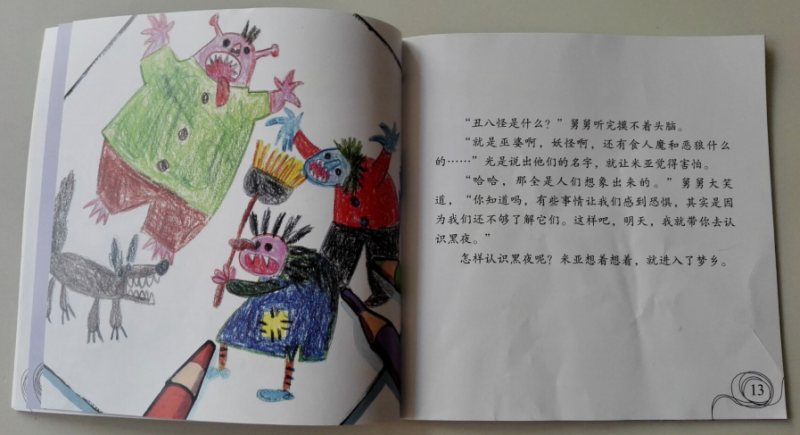 “丑八怪是什么？”舅舅听完摸不着头脑。
“就是巫婆啊，妖怪啊，还有食人魔和恶狼什么
的……”光是说出他们的名字，就让米亚觉得害怕。
“哈哈，那全是人们想象出来的。”舅舅大笑
道，“你知道吗，有些事情让我们感到恐惧，其实是因
为我们还不够了解它们。这样吧，明天，我就带你去认
识黑夜。”
怎样认识黑夜呢？米亚想着想着，就进入了梦乡。
13